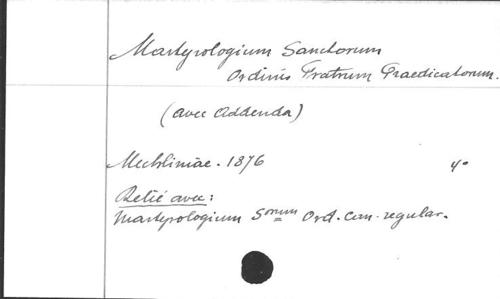 Martyrologium Sanctorum
Ordinis Fratrum Praedicatorum.
(avec Addenda)
Mechliniae. 1876 4°
Relié avec:
Martyrologium Sorum Ord. Can. regular.